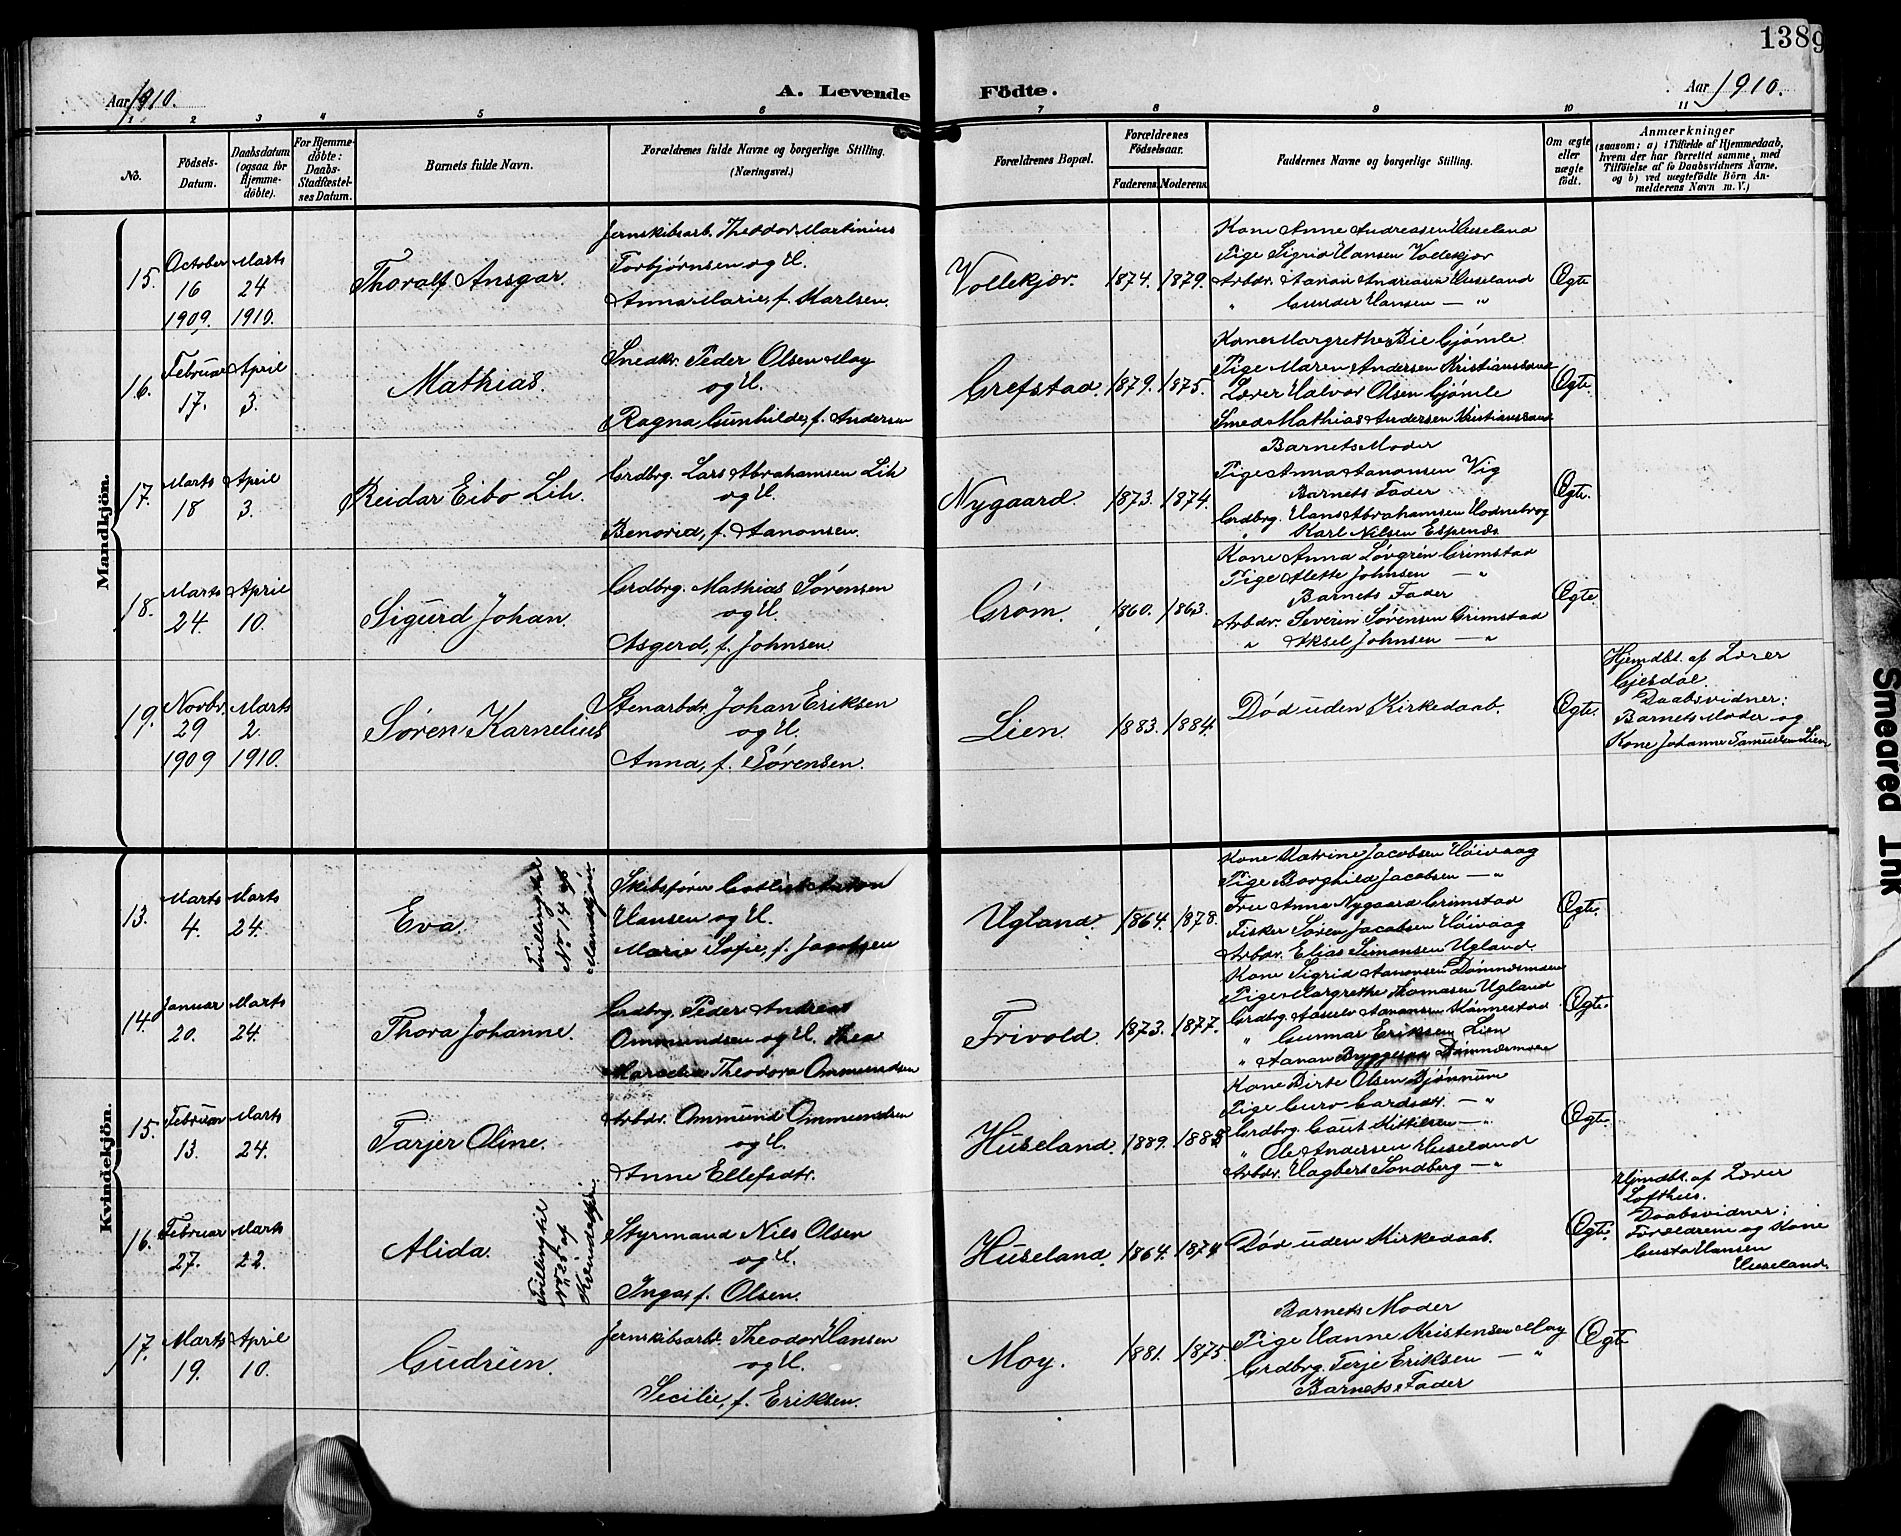 1389
Aar 1910.
A. Levende Födte.
Aar 1910.
1 2 3 4 5 6 7 8 9 10 11
No.
Födsels-Datum.
Daabsdatum (ogsaa for Hjemme-döbte).
For Hjemme-döbte: Daabs-Stadfæstel-ses Datum.
Barnets fulde Navn.
Forældrenes fulde Navne og borgerlige Stilling. (Næringsvei.)
Forældrenes Bopæl.
Forældrenes Födselsaar.
Faderens Moderens
Faddernes Navne og borgerlige Stilling.
Om ægte eller uægte födt.
Anmærkninger
(saasom: a) i Tilfælde af Hjemmedaab,
hvem der har forrettet samme, med
Tilföielse af to Daabsvidners Navne,
og b) ved uægtefödte Börn An-
melderens Navn m. V.)
Mandkjön.
15. October 16 1909. Marts 24 1910.
Thoralf Ansgar.
Jernskibsarb. Theodor Martinius
Torbjørnsen og H.
Anna Marie, f. Karlsen.
Vollekjær. 1874. 1879.
Kone Anne Andreasen Huseland
Pige Sigrid Hansen Vollekjær
Arbdr. Aanon Andreasen Huseland
" Gunder Hansen — "
Ægte
16. Februar 17. April 3.
Mathias.
Snedkr. Peder Olsen Moy
og H.
Ragna Gunhilde, f. Andersen
Grefstad. 1879. 1875.
Kone Margrethe Bie Gjømle
Pige Maren Andersen Kristianssand
Lærer Halvor Olsen Gjømle
Smed Mathias Andersen Kristianssand
Ægte
17. Marts 18 April 3.
Reidar Eibo Lih.
Grdbrg. Lars Abrahamsen Lih
og H.
Benorid, f. Aanonsen.
Nygaard. 1873. 1874.
Barnets Moder
Pige Anna Aanonsen Vig
Barnets Fader
Grdbrg. Hans Abrahamsen Hodnebrog
" Karl Nilsen Espenæs
Ægte.
18. Marts 24. April 10.
Sigurd Johan.
Grdbrg. Mathias Sørensen
og H.
Asgerd, f. Johnsen.
Grøm. 1860. 1863.
Kone Anna Løvgren Grimstad
Pige Alette Johnsen — "
Barnets Fader
Arbdr. Severin Sørensen Grimstad
" Aksel Johnsen — "
Ægte.
19. Novbr. 29 1909 Marts 2. 1910.
Søren Karnelius
Stenarbdr. Johan Eriksen
og H.
Anna, f. Sørensen.
Lien. 1883. 1884.
Død uden Kirkedaab.
Ægte.
Hjemdbt. af Lærer
Gjesdal.
Daabsvidner:
Barnets Moder og
Kone Johanne Samuelsen Lien
Kvindekjön.
13. Marts 4. Marts 24.
Eva.
Tvilling til
No. 14 af
Mandkjøn.
Skibsfører Gotlieb Anton
Hansen og H.
Marie Sofie, f. Jacobsen
Ugland. 1864. 1878.
Kone Katrine Jacobsen Høivaag
Pige Borghild Jacobsen — "
Fru Anna Nygaard Grimstad
Fisker Søren Jacobsen Høivaag
Arbdr. Elias Simonsen Ugland.
Ægte.
14. Januar 20. Marts 24.
Thora Johanne.
Grdbrg. Peder Andreas
Ommundsen og H. Thea
Theodora Ommundsen
Frivold. 1873. 1877.
Kone Sigrid Aanonsen Dømnesmoen
Pige Margrethe Thomasen Ugland
Grdbrg. Aanonsen
" Gunnar Eriksen Lien
" Aanon Dømnesmoen
Ægte.
15. Februar 13. Marts 24.
Tarjer Oline.
Arbdr. Ommund Ommundsen
og H.
Anne Ellefsdtr.
Huseland. 1889.
Kone Birte Olsen Bjønnum
Pige Guro Gardsdtr. — "
Grdbrg. Gaut Kittilsen — "
" Ole Andersen Huseland
Arbdr. Hagbert Sondberg — "
Ægte.
16. Februar 27. Marts 22.
Alida.
Tvilling til
No. 25 af
Kvindekjøn.
Styrmand Nils Olsen
og H.
Inga, f. Olsen.
Huseland. 1864. 1874
Død uden Kirkedaab.
Ægte.
Hjemdbt. af Lærer
Lofthus.
Daabsvidner:
Forældrene og Kone
Gusta Hansen
Huseland.
17. Marts 19. April 10.
Gudrun.
Jernskibsarbr. Theodor Hansen
og H.
Secilie, f. Eriksen.
Moy. 1881. 1875.
Barnets Moder
Pige Hanne Kristensen Moy
Grdbrg. Terje Eriksen — "
Barnets Fader
Ægte
Smeared Ink